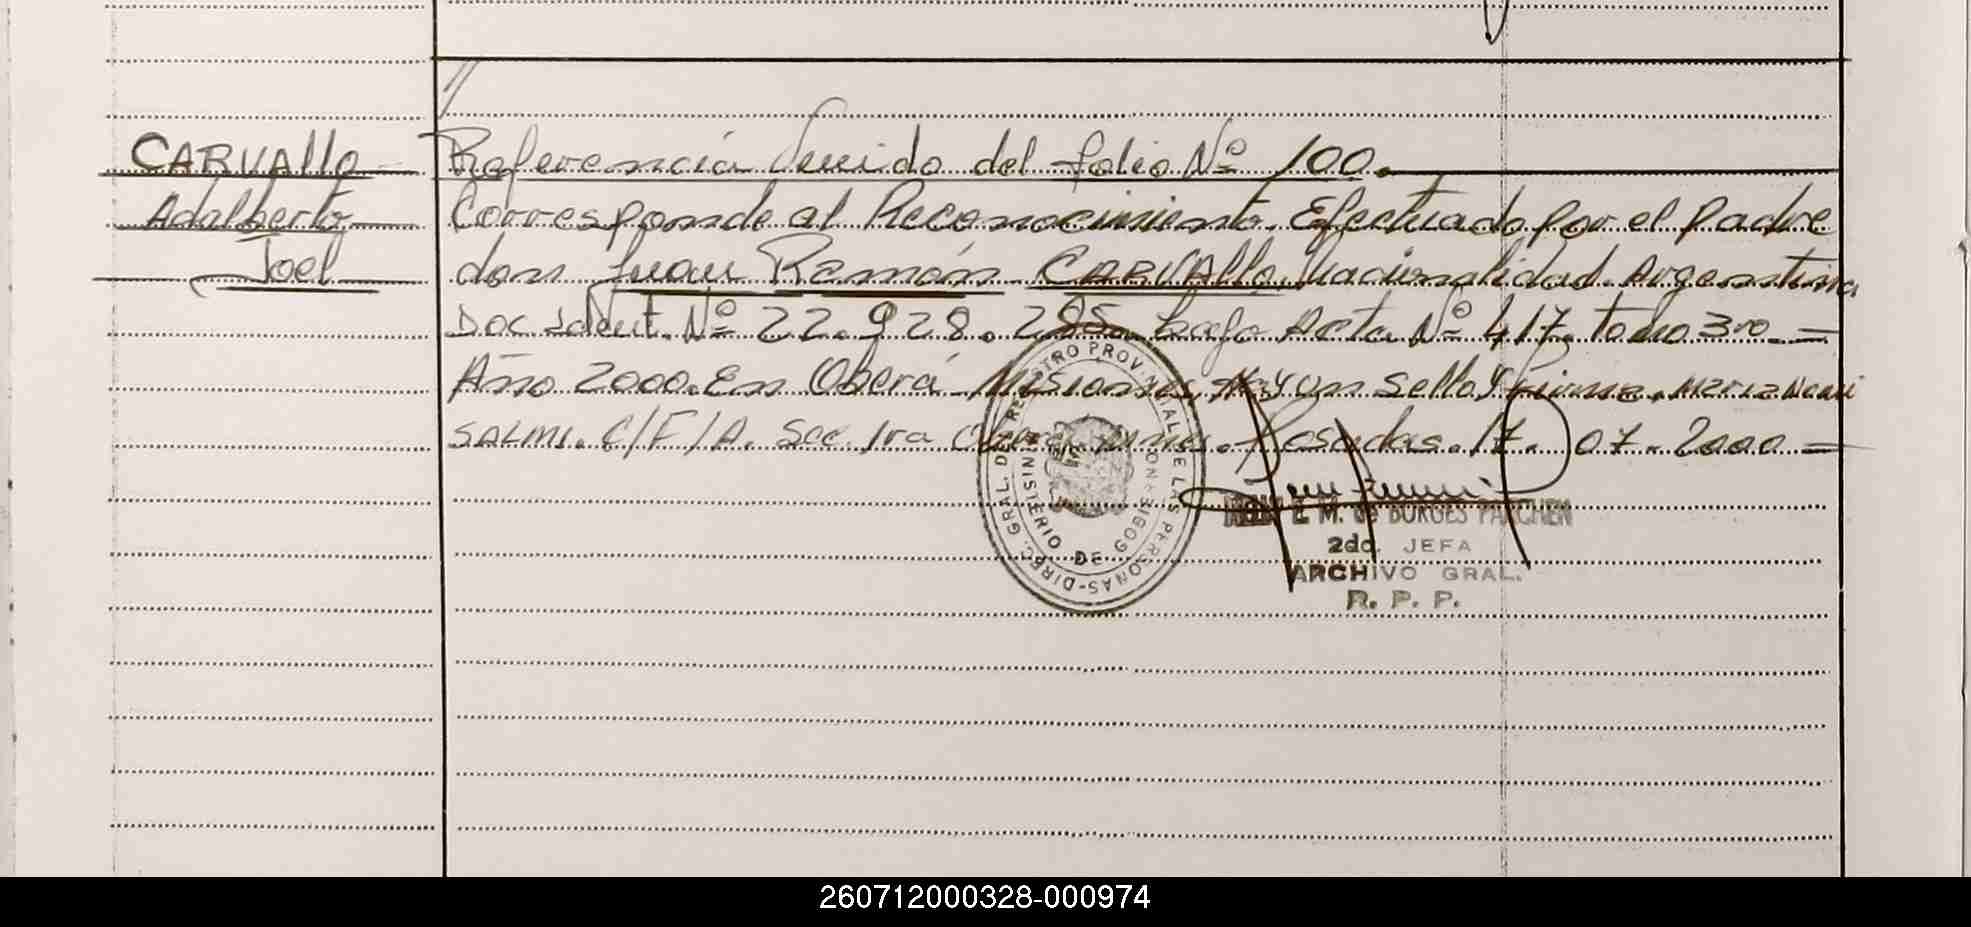 CARVALLO
Adalberto
Joel
Referencia Venido del folio Nº 100.
Corresponde al Reconocimiento. Efectuado por el padre
don Juan Ramón CARVALLO. Nacionalidad. Argentina
Doc. Ident. Nº 22.928.285. bajo Acta Nº 417. tomo 3ro.=
Año 2000. En Oberá Misiones, Hay un sello y firma. Maria Noemi
SALMI. C/F/A. Sec. 1ra Oberá. Mnes. Posadas. 17. 07. 2000 =
DIREC. GRAL. DE REGISTRO PROVINCIAL DE LAS PERSONAS
MINISTERIO DE GOB
E. M. de BORGES PARCHEN
2da. JEFA
ARCHIVO GRAL.
R. P. P.
260712000328-000974